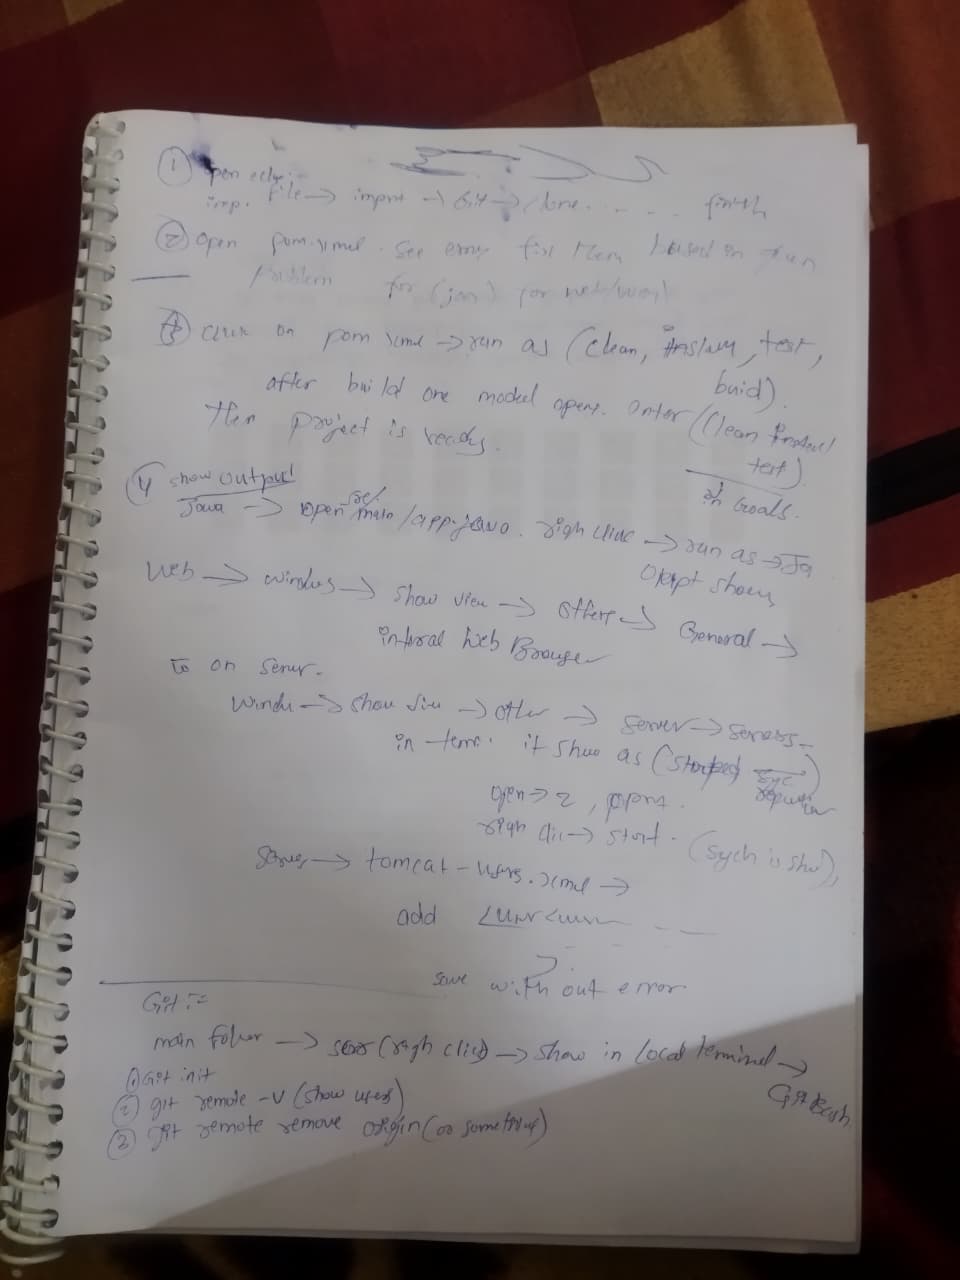 ① open
imp. File → import → Git → clone. . . . . finish
② open pom.xml. See error fix them based on
Problem for (jar) for
③ click on pom xml → run as (clean, install, test,
build).
after build one model opens. enter (clean install
test)
in Goals.
then project is ready.
④ show output
Java → open src/main/app.java. righ clik → run as → Ja
output shows
Web → windows → show view → others → General →
internal web Browser
To on server.
→ show view → other → server → servers
in it show as (stopped
open → 2,
righ clic → start. (sych is sho),
→ tomcat-users.xml →
add <
save with out error
Git :-
main folder → (righ click) → show in local terminal →
GitBash
① Git init
② git remote -v (show users)
③ git remote remove origin (or something)